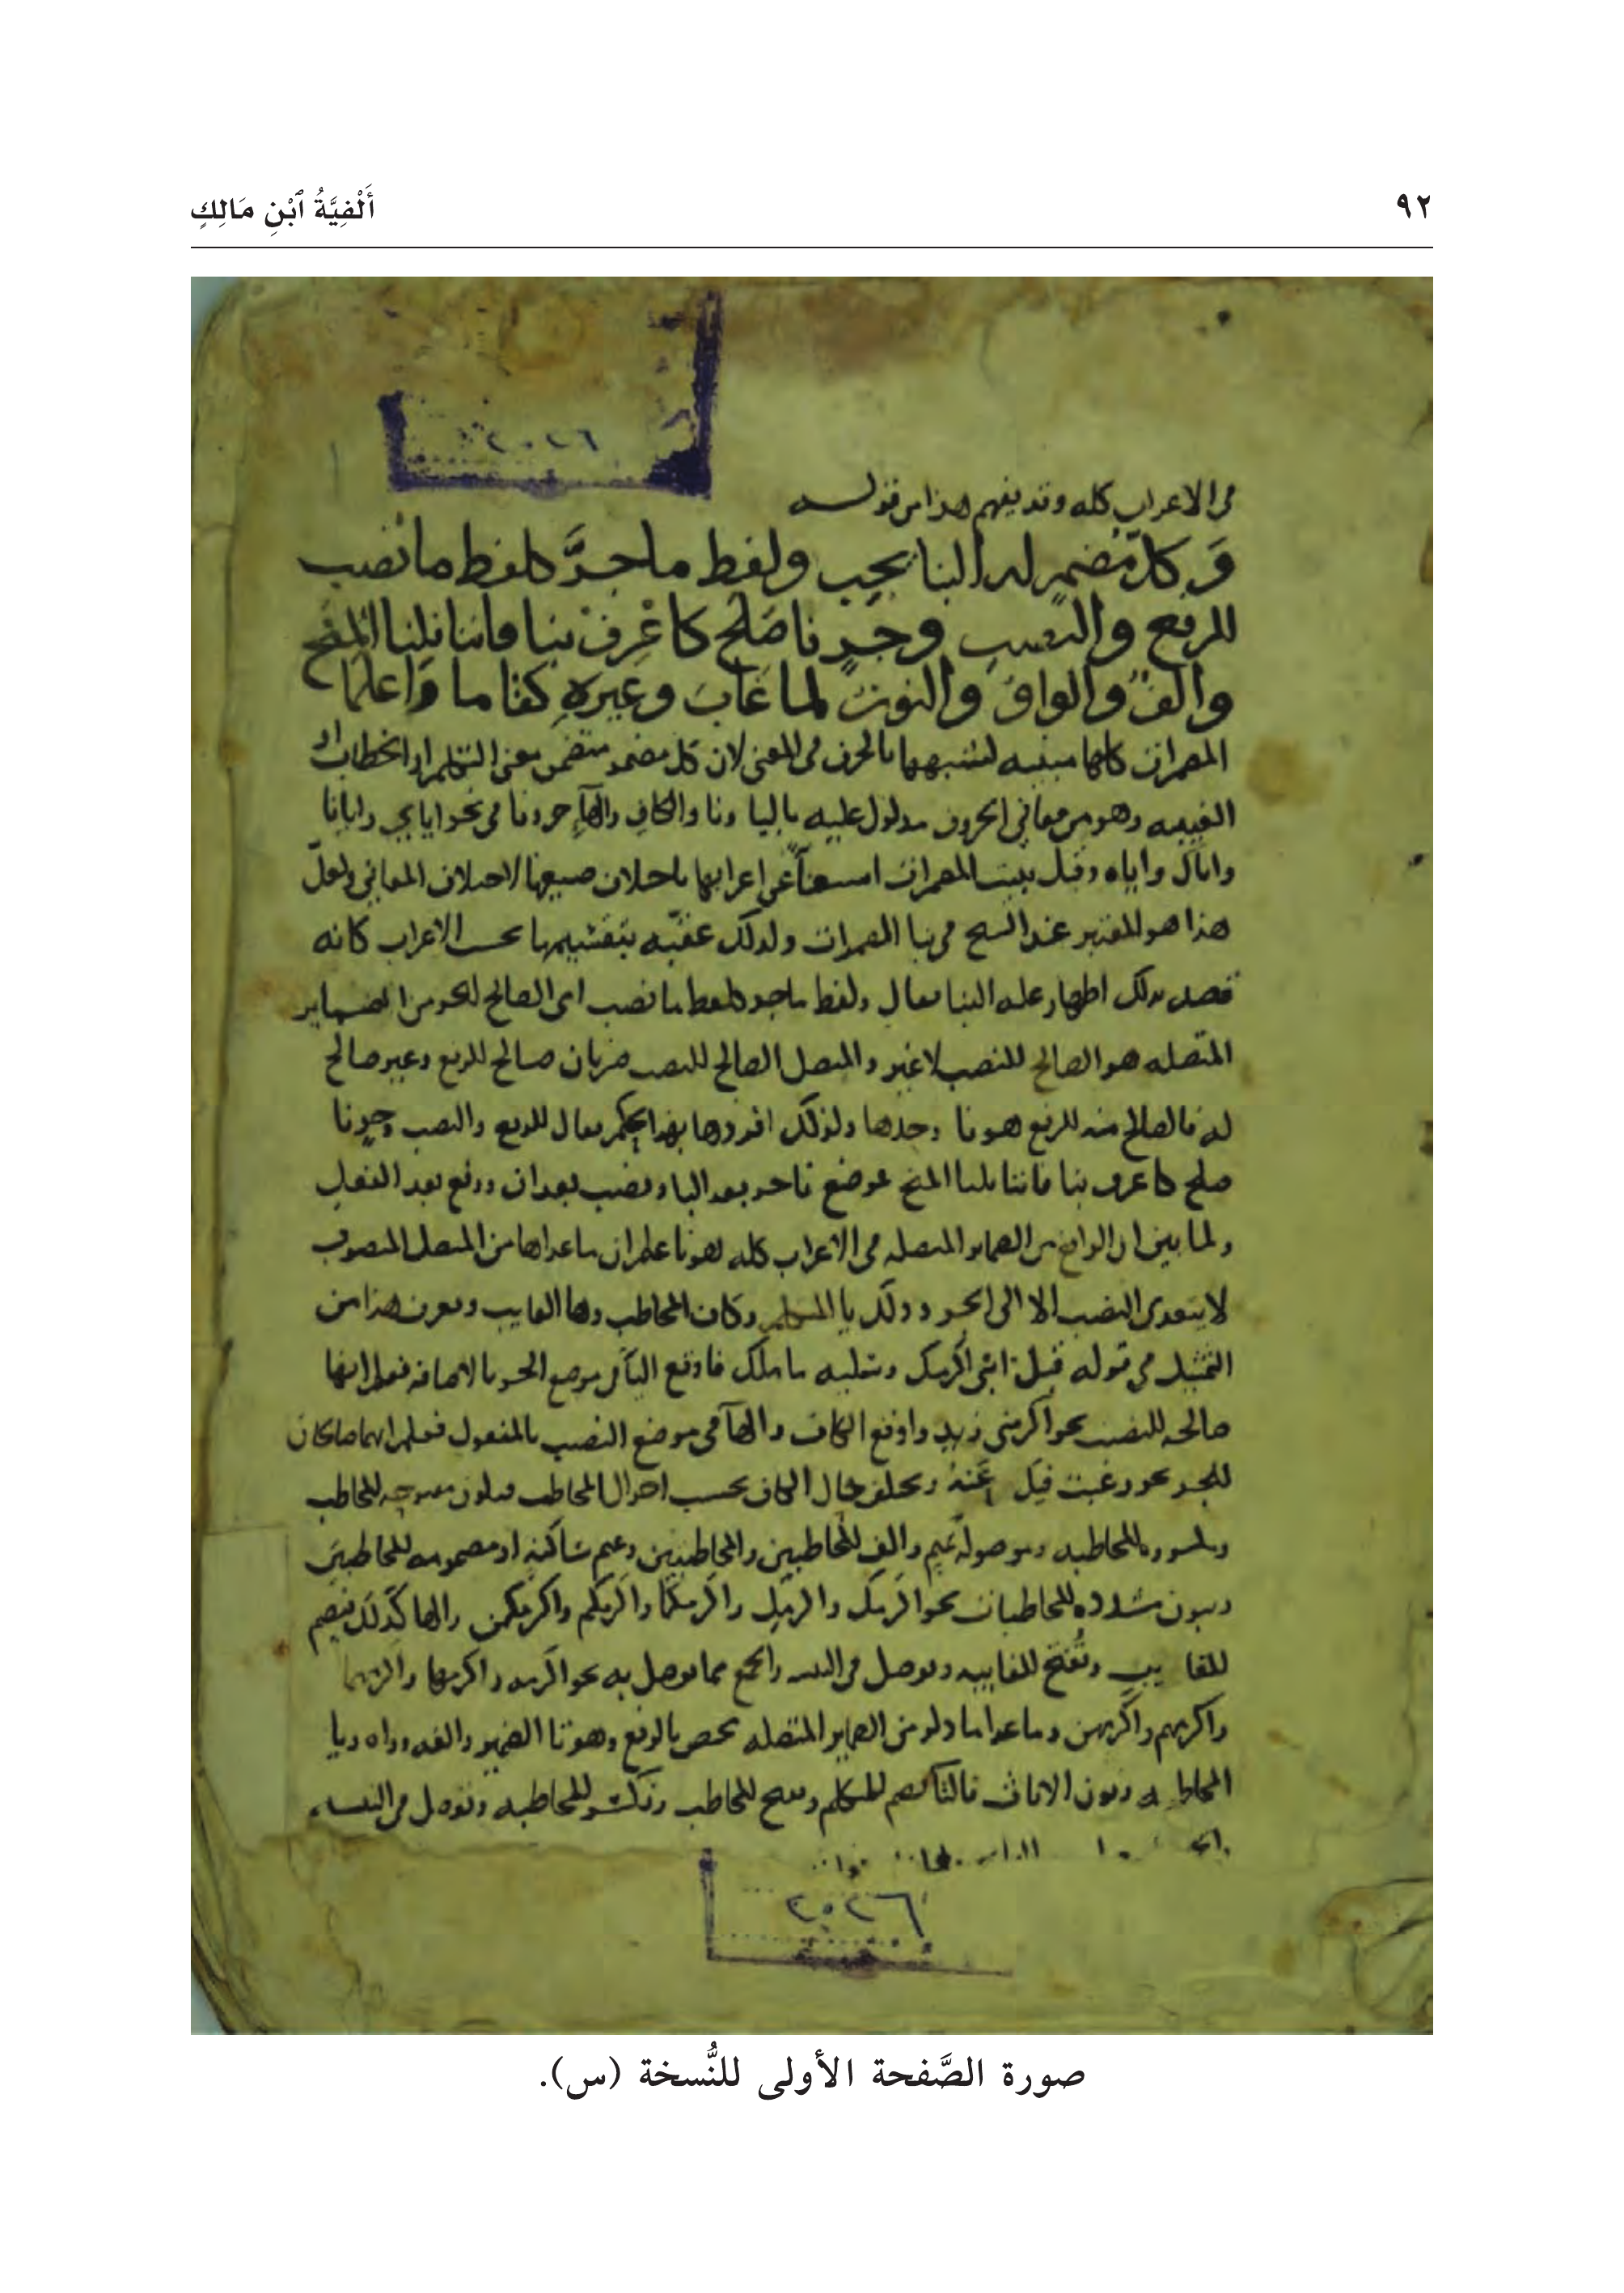 ٩٢
أَلْفِيَّةُ ٱبْنِ مَالِكٍ
٢٠٢٦
في الاعراب كله وقد يفهم هذا من قوله
وَكلّ مُضمرٍ له البنا يجب ولفظ ما جرَّ كلفظ ما نصب
للرفع والنصب وجرٍ نا صَلح كاعْرِفْ بنا فاننا نلنا المنح
والفٌ والواوُ والنون لما غابَ وغيرهِ كقاما وَاعلما
المضمرات كلها مبنيه لشبهها بالحرف في المعنى لان كل مضمر متضمن معنى التكلم او الخطاب او
الغيبه وهو من معاني الحروف مدلول عليه باليا ونا والكاف والهاء حروفا في نحو اياي وايانا
واياك واياه وقيل بنيت المضمرات استغناء عن اعرابها باختلاف صيغها لاختلاف المعاني ولعلّ
هذا هو المعتبر عند الشيخ في بنا المضمرات ولذلك عقبّه بتقسيمها بحسب الاعراب كانه
قصد بذلك اظهار علة البنا فقال ولفظ ما جر كلفظ ما نصب اي الصالح للجر من الضماير
المتصله هو الصالح للنصب لا غير والمتصل الصالح للنصب ضربان صالح للرفع وغير صالح
له فالصالح منه للرفع هو نا وحدها ولذلك افردها بهذا الحكم فقال للرفع والنصب وجرٍ نا
صلح كاعرف بنا فاننا نلنا المنح فموضع نا جر بعد البا ونصب بعد ان ورفع بعد الفعل
ولما بين ان الواقع من الضماير المتصله في الاعراب كله هو نا علم ان ما عداها من المتصل المنصوب
لا يتعدى النصب الا الى الجر وذلك يا المتكلم وكاف المخاطب وها الغايب ويعرف هذا من
التمثيل في قوله قبل ابني اكرمك وسليه ما ملك فاوقع اليا في موضع الجر بالاضافه فعلم انها
صالحه للنصب نحو اكرمني زيد واوقع الكاف والها في موضع النصب بالمفعول فعلم انهما صالحان
للجر نحو رغبت فيك عَنهُ ويختلف حال الكاف بحسب احوال المخاطب فتكون مفتوحه للمخاطب
ومكسوره للمخاطبه وموصوله بميم والف للمخاطبين والمخاطبتين وبميم ساكنه او مضمومه للمخاطبين
وبنون مشدده للمخاطبات نحو اكرمك واكرمكِ واكرمكما واكرمكم واكرمكن والها كذلك تضم
للغايب وتُفتح للغايبه وتوصل في التثنيه والجمع بما توصل به نحو اكرمه واكرمها واكرمهما
واكرمهم واكرمهن وما عدا ما ذكر من الضماير المتصله مختص بالرفع وهو تا الضمير والفه وواوه ويا
المخاطبه ونون الاناث فالتا تضم للمتكلم وتفتح للمخاطب وتكسر للمخاطبه وتوصل في التثنيه
٢٠٢٦
صورة الصَّفحة الأولى للنُّسخة (س).